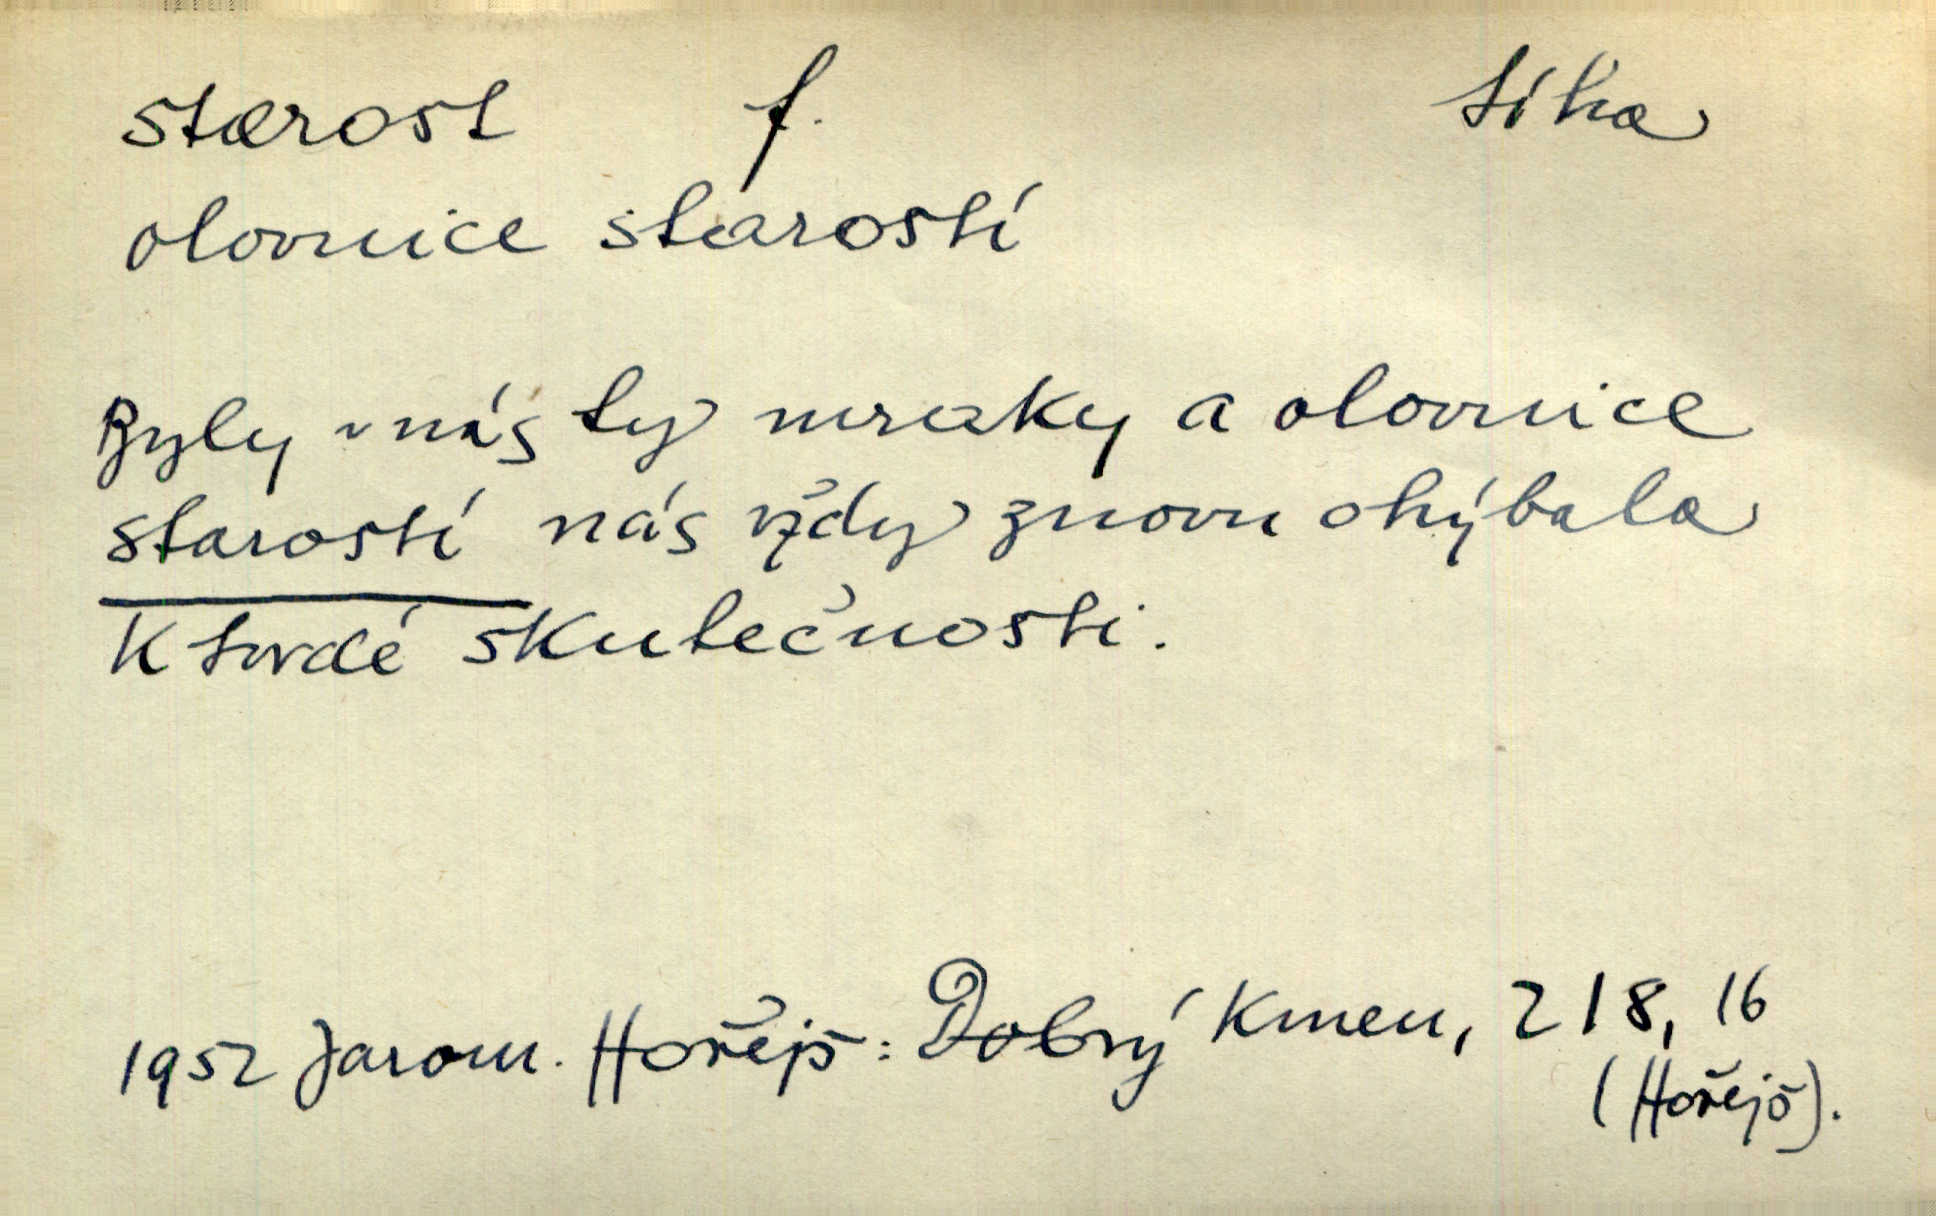 starost f. tíha
olovnice starostí
Byly v nás ty mraky a olovnice
starostí nás vždy znovu ohýbala
k tvrdé skutečnosti.
1952 Jarom. Hořejš: Dobrý kmen, 218, 16
(Hořejš).